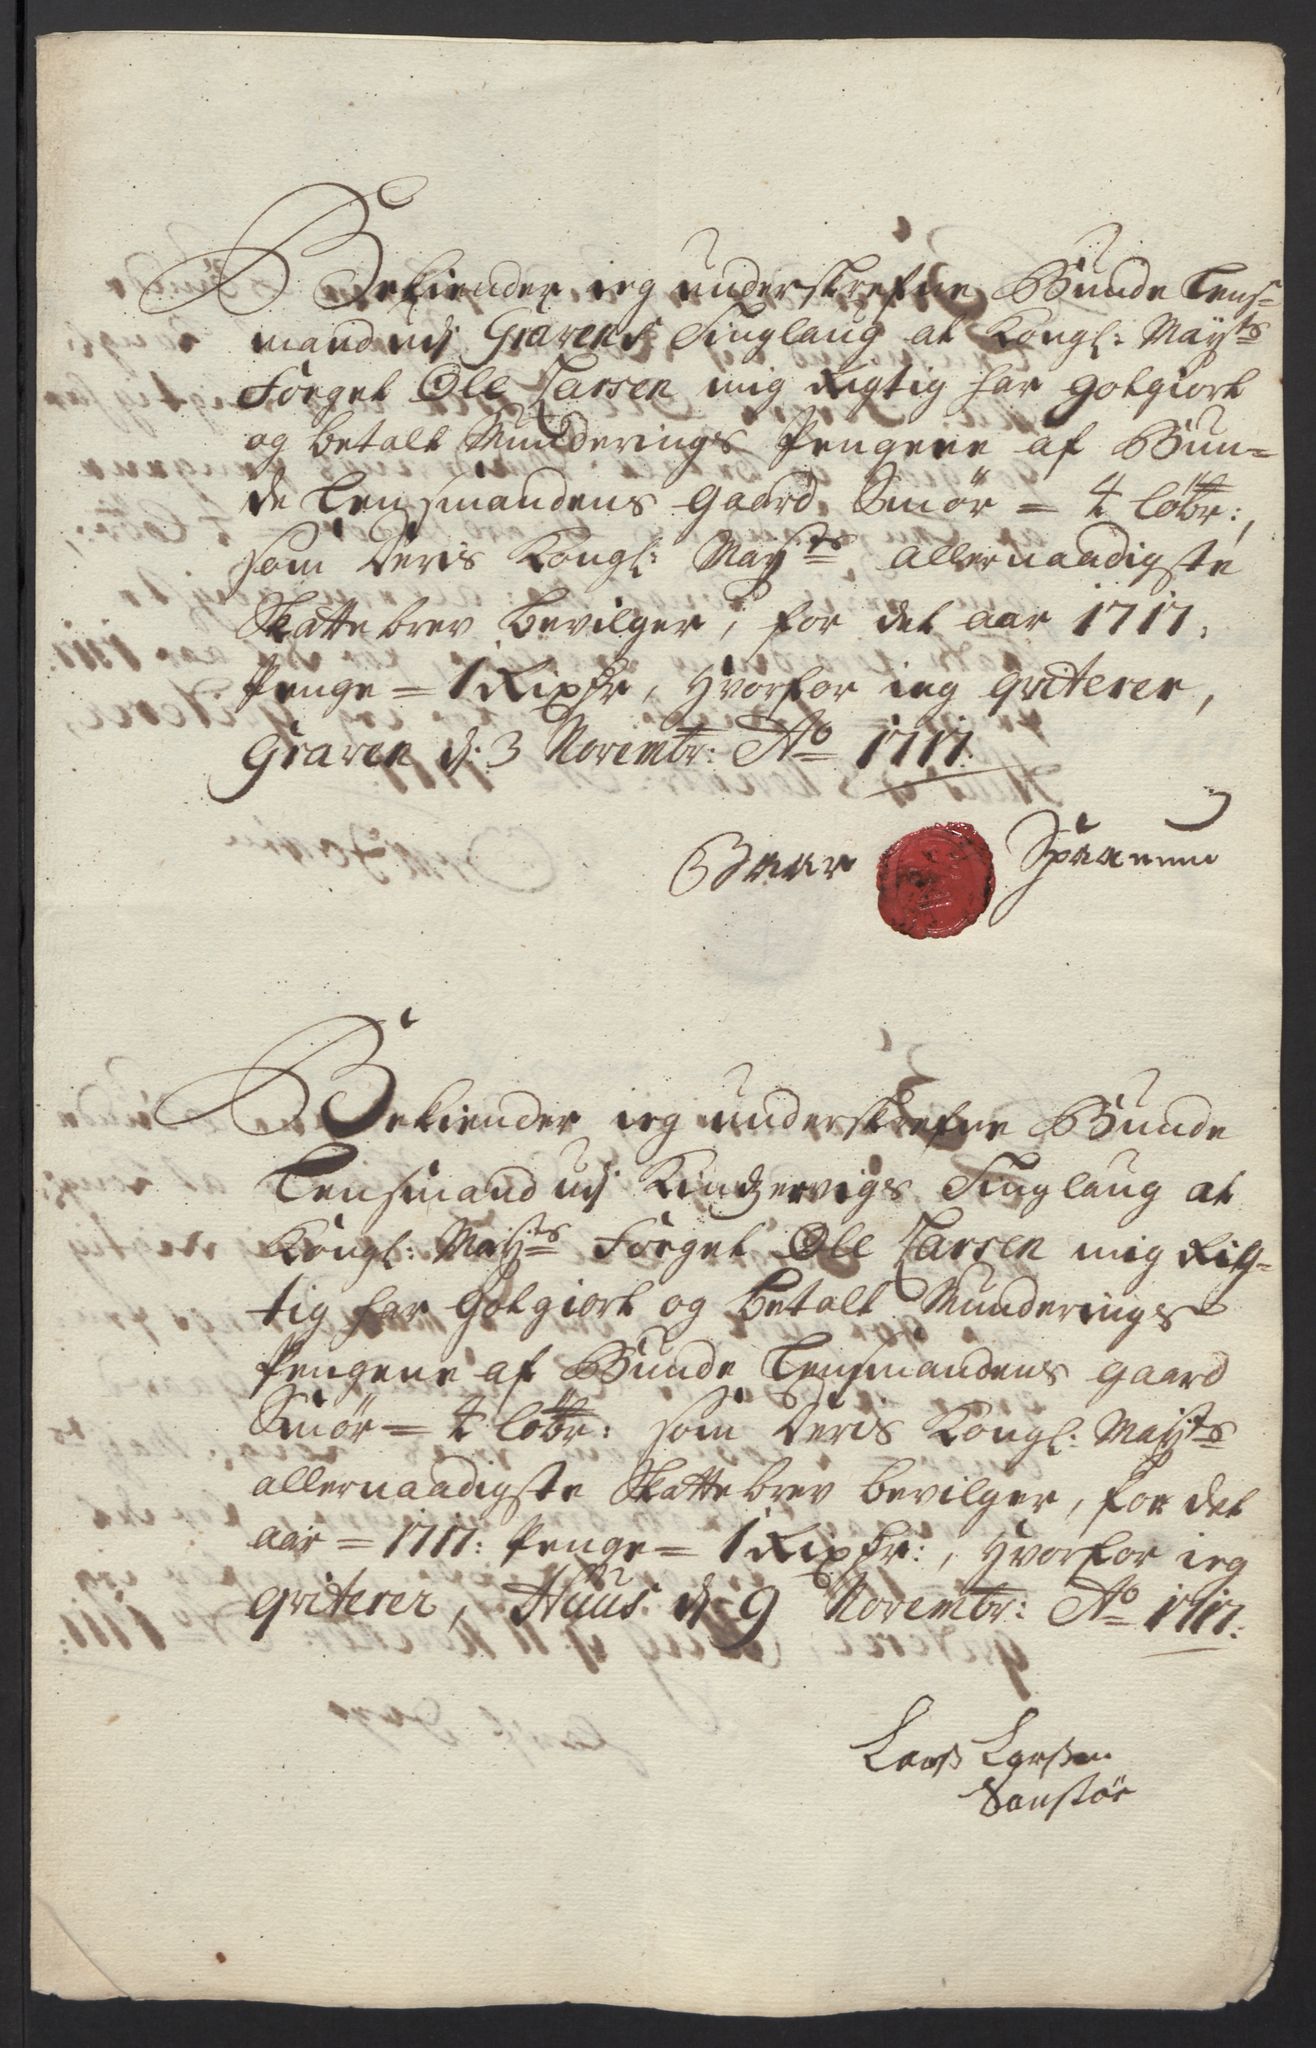 Bekiender ieg underskrefne Bunde Lens-
mand udj Gravens Tinglaug at Kongl: Mayts
Foraet Ole Larsen mig Rigtig har gotgiort
og betalt Munderings Pengene af Bun-
de Lensmandens gaard Smör = 4 løbr:,
som Deris Kongl: Mayts allernaadigste
Skatte brev bevilger, for det aar 1717,
Penge = 1 Rixdr, hvorfor ieg qviterer,
Graven d: 3 Novembr: Ao 1717.
Bekiender ieg underskrefne Bunde
Lensmand udj Kindzervigs Tinglaug at
Kongl: Mayts Foget Ole Larsen mig Rig-
tig har gotgiort og betalt Munderings
Pengene af Bunde Lensmandens gaard
Smör = 4 løbr: som Deris Kongl: Mayts
allernaadigste Skatte brev bevilger, for det
aar = 1717: Penge = 1 Rixdr:, hvorfor ieg
qviterer, Huus d 9 Novembr: Ao 1717:
Lars Larsen